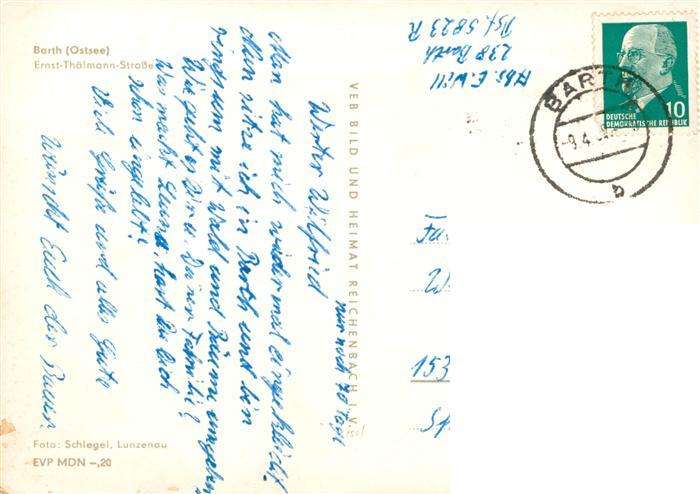 Barth (Ostsee)
Ernst-Thälmann-Straße
Abs. E. Will
238 Barth
Psf. 5823 R
BARTH
-9.4
b
10
DEUTSCHE
DEMOKRATISCHE REPUBLIK
VEB BILD UND HEIMAT REICHENBACH I. V.
nur noch 70 Tage
Werter Wilfried
Man hat mich wiedermal
Nun sitze ich in Barth und bin
ringsrum mit Wald und Bäume umgeben
Wie geht es Dir u. Deiner Familie?
Was macht hast Du Dich
schon eingelebt?
Viele Grüße und alles Gute
wünscht Euch der
Fa
153
Sp
Foto: Schlegel, Lunzenau
EVP MDN -,20